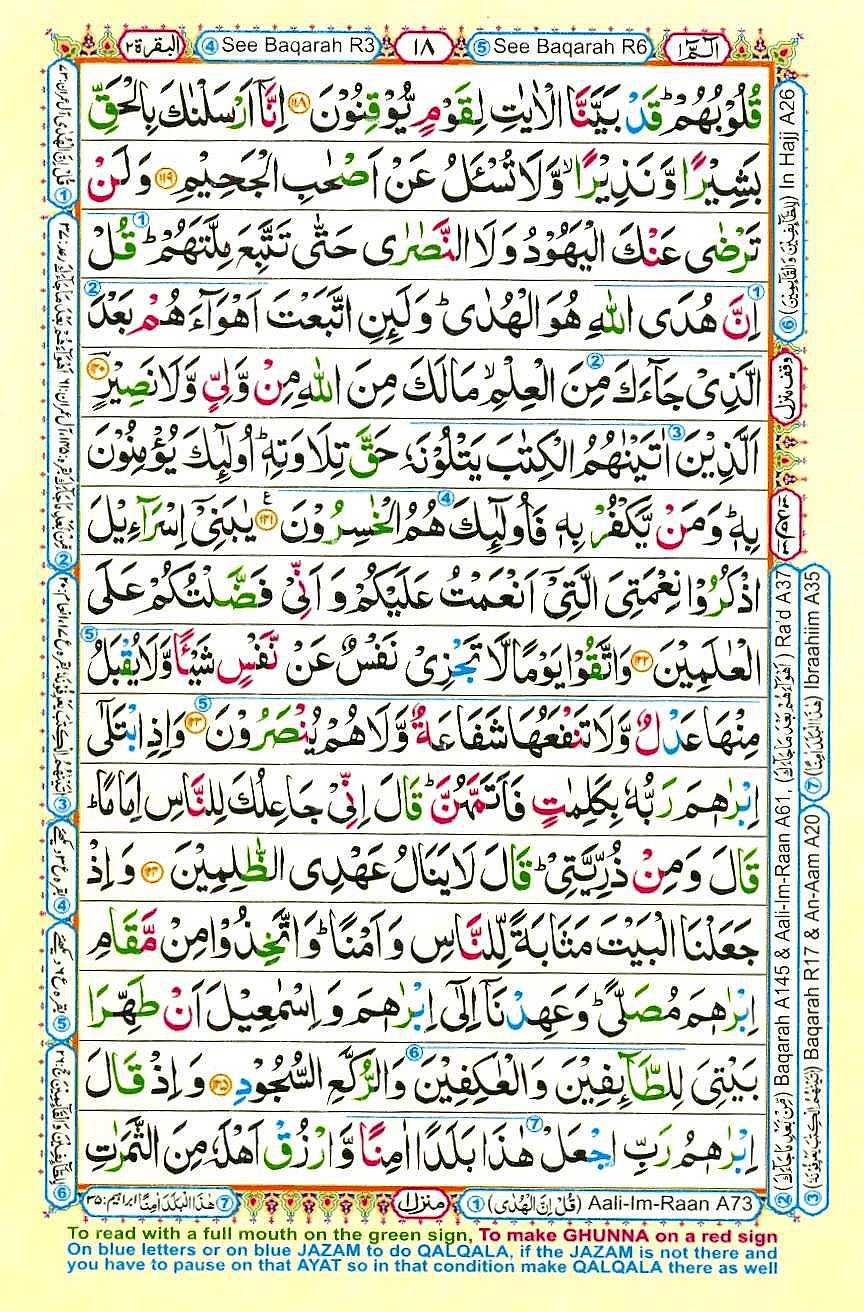 البقرة ٢
④ See Baqarah R3
١٨
⑤ See Baqarah R6
الٓمّٓ ١
قُلُوْبُهُمْ ؕ قَدْ بَيَّنَّا الْاٰيٰتِ لِقَوْمٍ يُّوْقِنُوْنَ ﴿١١٨﴾ اِنَّاۤ اَرْسَلْنٰكَ بِالْحَقِّ
بَشِيْرًا وَّ نَذِيْرًا ۙ وَّلَا تُسْـَٔلُ عَنْ اَصْحٰبِ الْجَحِيْمِ ﴿١١٩﴾ وَ لَنْ
تَرْضٰى عَنْكَ الْيَهُوْدُ وَ لَا النَّصٰرٰى حَتّٰى تَتَّبِعَ مِلَّتَهُمْ ؕ قُلْ
اِنَّ هُدَى اللّٰهِ هُوَ الْهُدٰى ؕ وَ لَىِٕنِ اتَّبَعْتَ اَهْوَآءَهُمْ بَعْدَ
الَّذِيْ جَآءَكَ مِنَ الْعِلْمِ ۙ مَا لَكَ مِنَ اللّٰهِ مِنْ وَّلِيٍّ وَّ لَا نَصِيْرٍ ﴿١٢٠﴾
اَلَّذِيْنَ اٰتَيْنٰهُمُ الْكِتٰبَ يَتْلُوْنَهٗ حَقَّ تِلَاوَتِهٖ ؕ اُولٰٓىِٕكَ يُؤْمِنُوْنَ
بِهٖ ؕ وَ مَنْ يَّكْفُرْ بِهٖ فَاُولٰٓىِٕكَ هُمُ الْخٰسِرُوْنَ ﴿١٢١﴾ يٰبَنِيْۤ اِسْرَآءِيْلَ
اذْكُرُوْا نِعْمَتِيَ الَّتِيْۤ اَنْعَمْتُ عَلَيْكُمْ وَ اَنِّيْ فَضَّلْتُكُمْ عَلَى
الْعٰلَمِيْنَ ﴿١٢٢﴾ وَ اتَّقُوْا يَوْمًا لَّا تَجْزِيْ نَفْسٌ عَنْ نَّفْسٍ شَيْـًٔا وَّ لَا يُقْبَلُ
مِنْهَا عَدْلٌ وَّ لَا تَنْفَعُهَا شَفَاعَةٌ وَّ لَا هُمْ يُنْصَرُوْنَ ﴿١٢٣﴾ وَ اِذِ ابْتَلٰۤى
اِبْرٰهٖمَ رَبُّهٗ بِكَلِمٰتٍ فَاَتَمَّهُنَّ ؕ قَالَ اِنِّيْ جَاعِلُكَ لِلنَّاسِ اِمَامًا ؕ
قَالَ وَ مِنْ ذُرِّيَّتِيْ ؕ قَالَ لَا يَنَالُ عَهْدِي الظّٰلِمِيْنَ ﴿١٢٤﴾ وَ اِذْ
جَعَلْنَا الْبَيْتَ مَثَابَةً لِّلنَّاسِ وَ اَمْنًا ؕ وَ اتَّخِذُوْا مِنْ مَّقَامِ
اِبْرٰهٖمَ مُصَلًّى ؕ وَ عَهِدْنَاۤ اِلٰۤى اِبْرٰهٖمَ وَ اِسْمٰعِيْلَ اَنْ طَهِّرَا
بَيْتِيَ لِلطَّآىِٕفِيْنَ وَ الْعٰكِفِيْنَ وَ الرُّكَّعِ السُّجُوْدِ ﴿١٢٥﴾ وَ اِذْ قَالَ
اِبْرٰهٖمُ رَبِّ اجْعَلْ هٰذَا بَلَدًا اٰمِنًا وَّ ارْزُقْ اَهْلَهٗ مِنَ الثَّمَرٰتِ
⑥ (لِلطَّآىِٕفِيْنَ وَ الْقَآىِٕمِيْنَ) In Hajj A26
وقف منزل
② (مِنْ بَعْدِ مَا جَآءَكَ) Baqarah A145 & Aali-Im-Raan A61, (اَهْوَآءَهُمْ بَعْدَ مَا جَآءَكَ) Ra'd A37
③ (اٰتَيْنٰهُمُ الْكِتٰبَ يَعْرِفُوْنَهٗ) Baqarah R17 & An-Aam A20
⑦ (هٰذَا الْبَلَدَ اٰمِنًا) Ibraahiim A35
⑦ هٰذَا الْبَلَدَ اٰمِنًا ابراہیم: ٣٥
منزل ١
① (قُلْ اِنَّ الْهُدٰى) Aali-Im-Raan A73
To read with a full mouth on the green sign, To make GHUNNA on a red sign
On blue letters or on blue JAZAM to do QALQALA, if the JAZAM is not there and
you have to pause on that AYAT so in that condition make QALQALA there as well